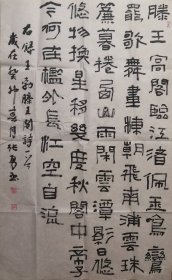 滕王高閣臨江渚佩玉鳴鸞
罷歌舞畫棟朝飛南浦雲珠
簾暮捲西山雨閒雲潭影日悠
悠物換星移幾度秋閣中帝子
今何在檻外長江空自流
右錄王勃滕王閣詩一首
歲在癸卯